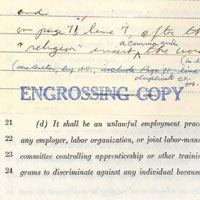 and
on page 71 line 7, after th
"religion" insert a comma and the word
ENGROSSING COPY
21 (d) It shall be an unlawful employment prac
22 any employer, labor organization, or joint labor-mana
23 committee controlling apprenticeship or other train
24 grams to discriminate against any individual because